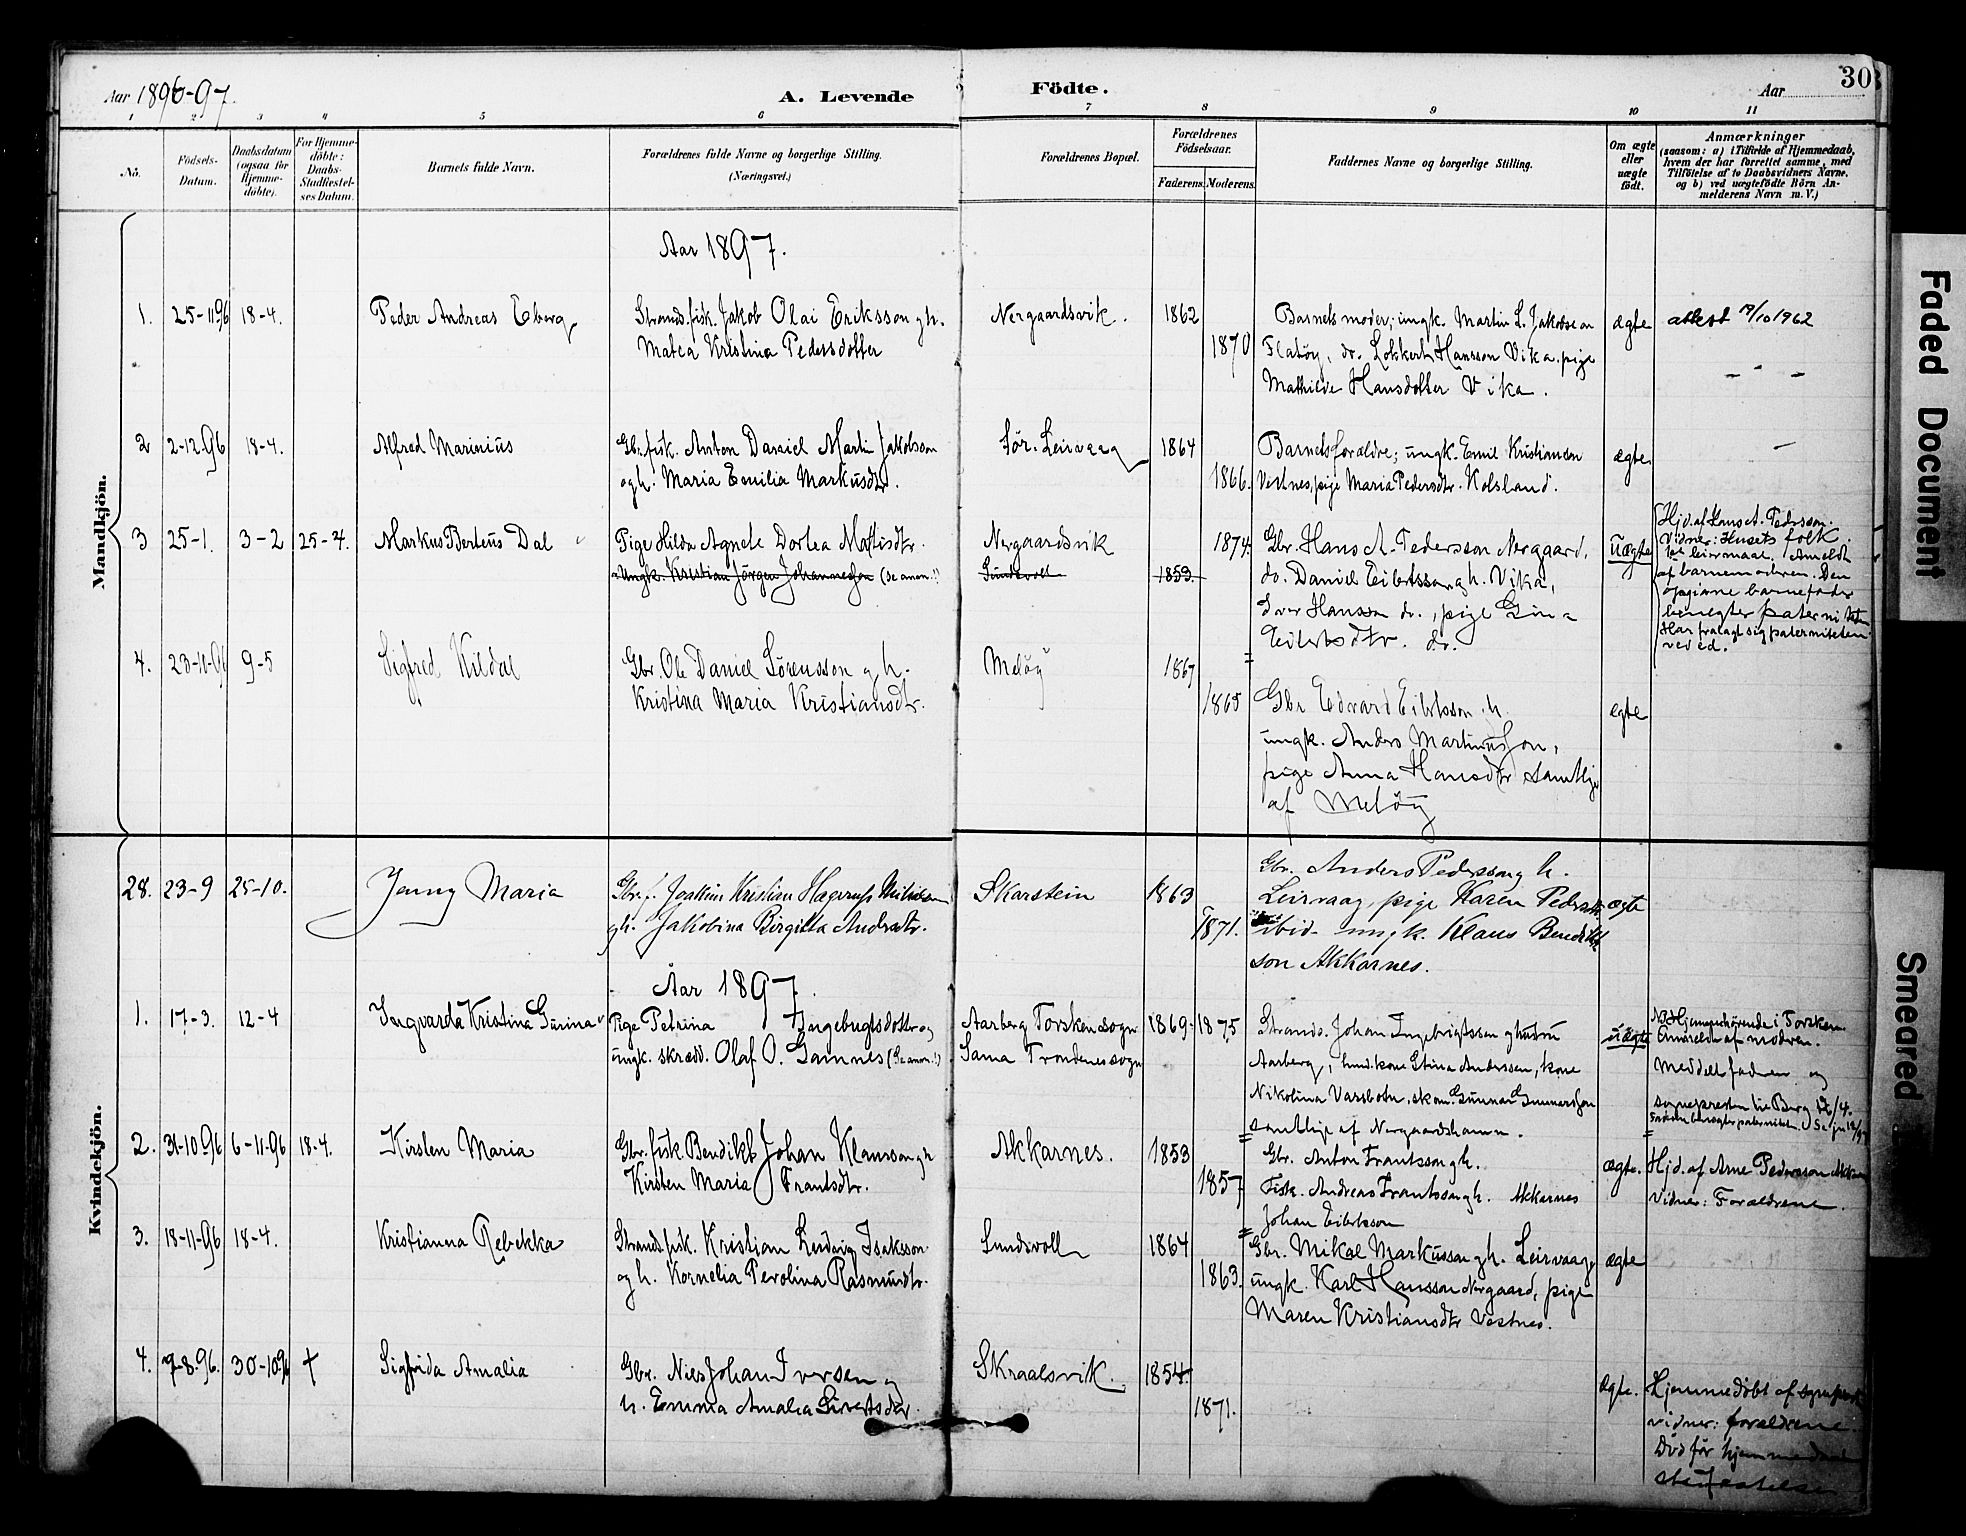 Aar 1896-97.
A. Levende Födte.
Aar
30
1 2 3 4 5 6 7 8 9 10 11
No.
Födsels-
Datum.
Daabsdatum
(ogsaa for
Hjemme-
döbte).
For Hjemme-
döbte:
Daabs-
Stadfæstel-
ses Datum.
Barnets fulde Navn.
Forældrenes fulde Navne og borgerlige Stilling.
(Næringsvei.)
Forældrenes Bopæl.
Forældrenes
Födselsaar.
Faderens. Moderens.
Faddernes Navne og borgerlige Stilling.
Om ægte
eller
uægte
födt.
Anmærkninger
(saasom: a) i Tilfælde af Hjemmedaab,
hvem der har forrettet samme, med
Tilföielse af to Daabsvidners Navne,
og b) ved uægtefödte Börn An-
melderens Navn m. V.)
Mandkjön.
Aar 1897.
1. 25-11 96 18-4. Peder Andreas Eberg
Strands.fisk. Jakob Olai Eriksson og h.
Matea Kristina Pedersdotter
Nergaardsvik. 1862 1870
Barnets moder; ungk. Martin L. Jakobsson
Flatöy, do. Lokkert Hansson Vika, pige
Mathilde Hansdotter Vika.
ægte
attest 17/10 1962
2 2-12.96 18-4. Alfred Marinius
Gbr. fisk. Anton Daniel Martin Jakobsson
og h. Maria Emilia Markusdtr.
Sör. Leirvaag 1864 1866.
Barnets forældre; ungk. Emil Kristiansen
Vestnes, pige Maria Pedersdtr. Kolsland.
ægte.
3 25-1. 3-2 25-4. Markus Berteus Dal
Pige Hilda Agnete Dortea Mattisdtr.
Ungk. Kristian Jörgen Johannesson (Se anm.!)
Nergaardsvik 1874.
Sundsvoll 1853.
Gbr. Hans A. Pedersson Nergaard,
do. Daniel Eibertsson og h. Vika,
Iver Hansson do., pige Gina
Eilertsdtr. do.
Uægte
Hjd. af Hans A. Pedersson.
Vidner: Husets folk.
Anmeldt
af barnemoderen. Den
opgivne barnefader
benegter paterniteten
Har fralagt sig paterniteten
ved ed.
4. 23-11-96 9-5 Sigfred Kildal
Gbr. Ole Daniel Sörensson og h.
Kristina Maria Kristiansdtr.
Melöy 1867 1865
Gbr Edvard Eilertsson. h.
ungk. Anders Martinusson,
pige Anna Hansdtr samtlige
af Melöy
egte
Kvindekjön.
28. 23-9 25-10. Jenny Maria
Gbr. f. Joakim Kristian Hagerup
og h. Jakobina Birgitta Andrsdtr.
Skarstein 1863 1871.
Gbr. Anders Pedersson og h.
Leirvaag, pige Karen Pedersdtr.
ibid- ungk. Klaus Benedikt
son Akkarnes.
ægte
Aar 1897.
1. 17-3. 12-4 Ingvarda Kristina Gurina
Pige Petrina Ingebrigtsdotter og
ungk. skræd. Olaf O. Gamnes (Se anm.!)
Aarberg Torsken sogn 1869- 1875
Sama Trondenes sogn
Strands. Johan Ingebrigtssen og hustru
Aarberg, hmd. kone Stina Anderssen, kone
Nikolina Varsbotn, skom. Gunnar Gunnersson
samtlige af Nergaardshamn.
uægte
NB Hjemmehörende i Torsken.
Anmeldt af moderen.
Meddelt faderen og
sognepresten til Berg 12/4.
Faderen benegter paternitet.
2. 31-10 96 6-11-96 18-4. Kirsten Maria
Gbr. fisk Bendikt Johan Klausson og h
Kirsten Maria Frantsdtr.
Akkarnes. 1853 1857
Gbr. Anton Frantsson og h.
Fisk. Andreas Frantsson og h. Akkarnes
Johan Eilertsson
ægte.
Hjd. af Arne Pedersson Akkarnes
Vidner: Forældrene.
3. 18-11-96 18-4. Kristianna Rebekka
Strands.fisk. Kristian Ludvig Isaksson
og h. Kornelia Perolina Rasmusdtr.
Sundsvoll 1864 1863.
Gbr. Mikal Markusson og h. Leirvaag,
ungk. Karl Hansson Nergaard, pige
Maren Kristiansdtr Vestnes.
ægte
4. 7-8-96. 30-10 96 † Sigfrida Amalia
Gbr. Nils Johan Iversen og
h. Emma Amalia Sivertsdtr.
Skraalsvik. 1854. 1871.
Ægte.
Hjemmedöbt af
vidner: forældrene.
Död för hjemmedaab
stadfæstelsen
Faded Document
Smeared